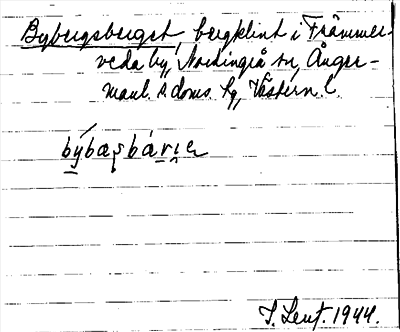 Bybergsberget, bergklint i Främmer-
veda by, Nordingrå sn, Ånger-
manl. s doms. hg, Västern. l.
býbaʂbárɩe
J. Leuf. 1944.